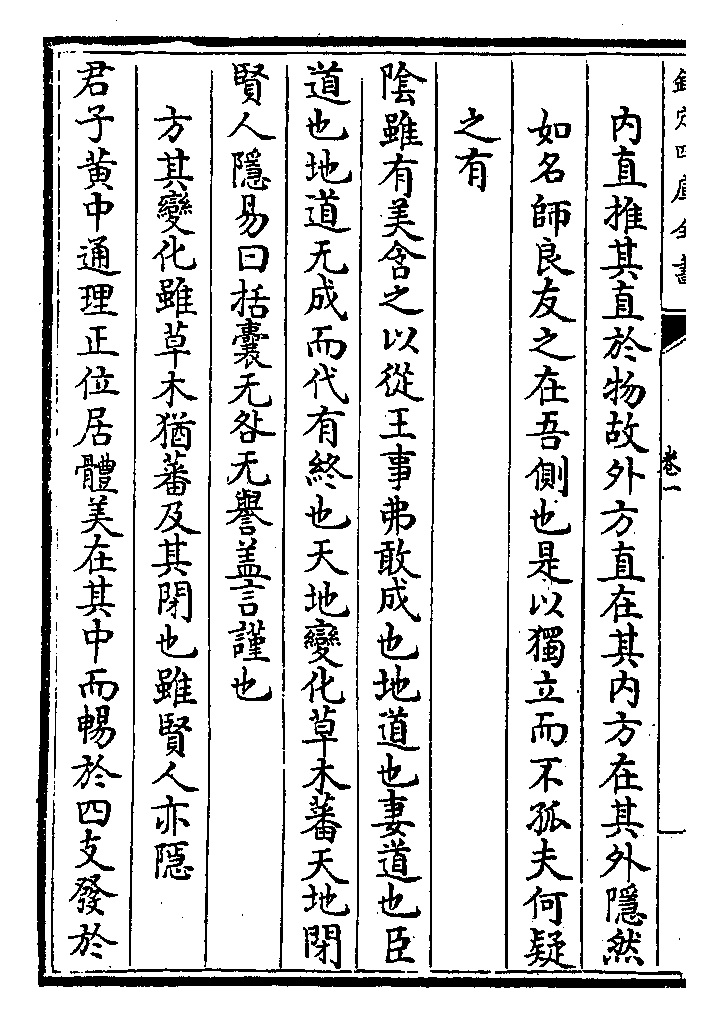 欽定四庫全書
卷一
内直推其直於物故外方直在其内方在其外隱然
如名師良友之在吾側也是以獨立而不孤夫何疑
之有
陰雖有美含之以從王事弗敢成也地道也妻道也臣
道也地道无成而代有終也天地變化草木蕃天地閉
賢人隱易曰括囊无咎无譽盖言謹也
方其變化雖草木猶蕃及其閉也雖賢人亦隠
君子黄中通理正位居體美在其中而暢於四支發於